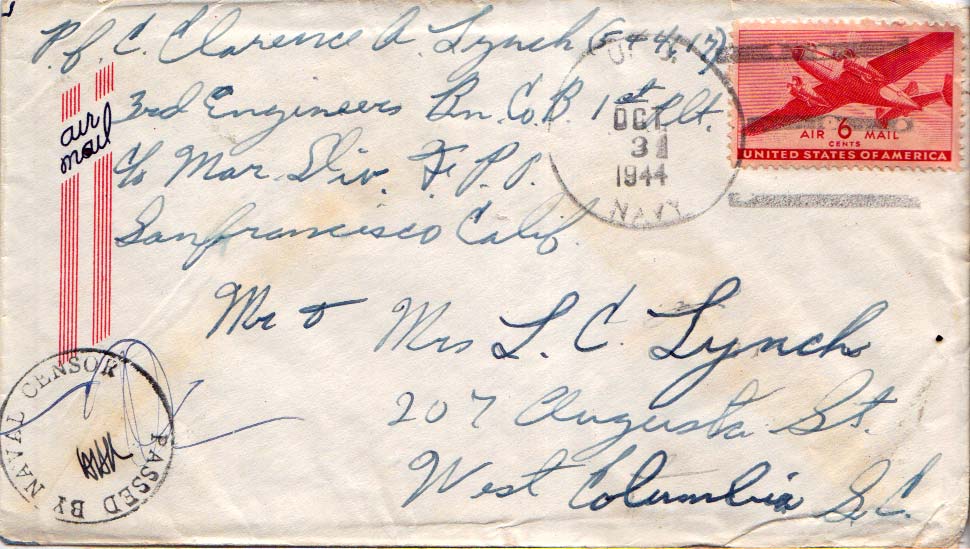 P.f.C. Clarence A Lynch
3rd Engineers Bn. Co. B. 1st Plt.
c/o Mar. Div. F.P.O.
San francisco Calif.
air
mail
DCT
31
1944
NAVY
AIR 6 MAIL
CENTS
UNITED STATES OF AMERICA
Mr &
Mrs L. C. Lynch
207 Augusta St.
West Columbia S.C.
PASSED BY NAVAL CENSOR